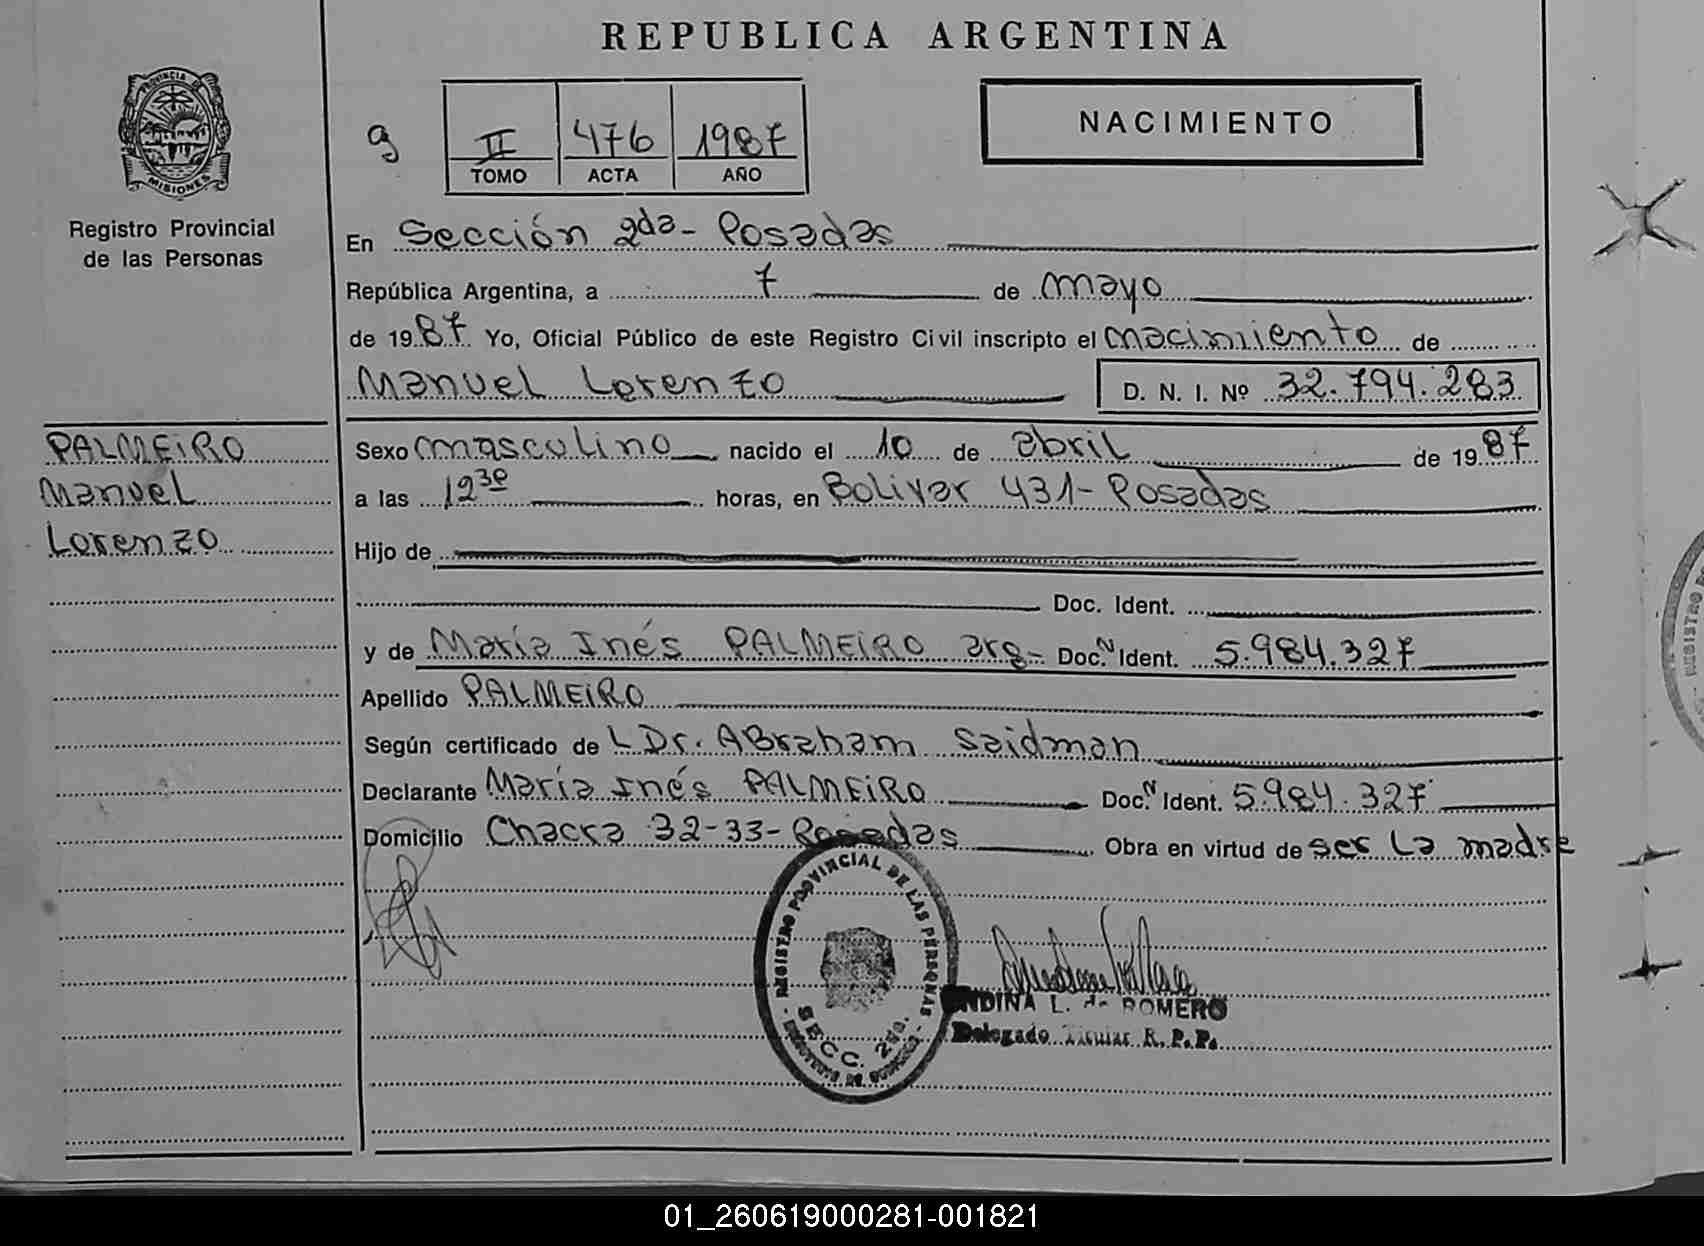 REPUBLICA ARGENTINA
PROVINCIA DE
MISIONES
Registro Provincial
de las Personas
g
II 476 1987
TOMO ACTA AÑO
NACIMIENTO
En Sección 2da - Posadas
República Argentina, a 7 de mayo
de 1987 Yo, Oficial Público de este Registro Civil inscripto el nacimiento de
Manuel Lorenzo D. N. I. Nº 32.794.283
PALMEIRO
Manuel
Lorenzo
Sexo masculino nacido el 10 de abril de 1987
a las 12 30 horas, en Bolivar 431 - Posadas
Hijo de
Doc. Ident.
y de María Inés PALMEIRO arg - Doc. N Ident. 5.984.327
Apellido PALMEIRO
Según certificado de L Dr. ABraham Saidman
Declarante María Inés PALMEIRO Doc. N Ident. 5.984.327
Domicilio Chacra 32-33 - Posadas Obra en virtud de ser la madre
REGISTRO PROVINCIAL DE LAS PERSONAS
SECC. 2da.
L. de ROMERO
Delegado Titular R.P.P.
REGISTRO
01_260619000281-001821